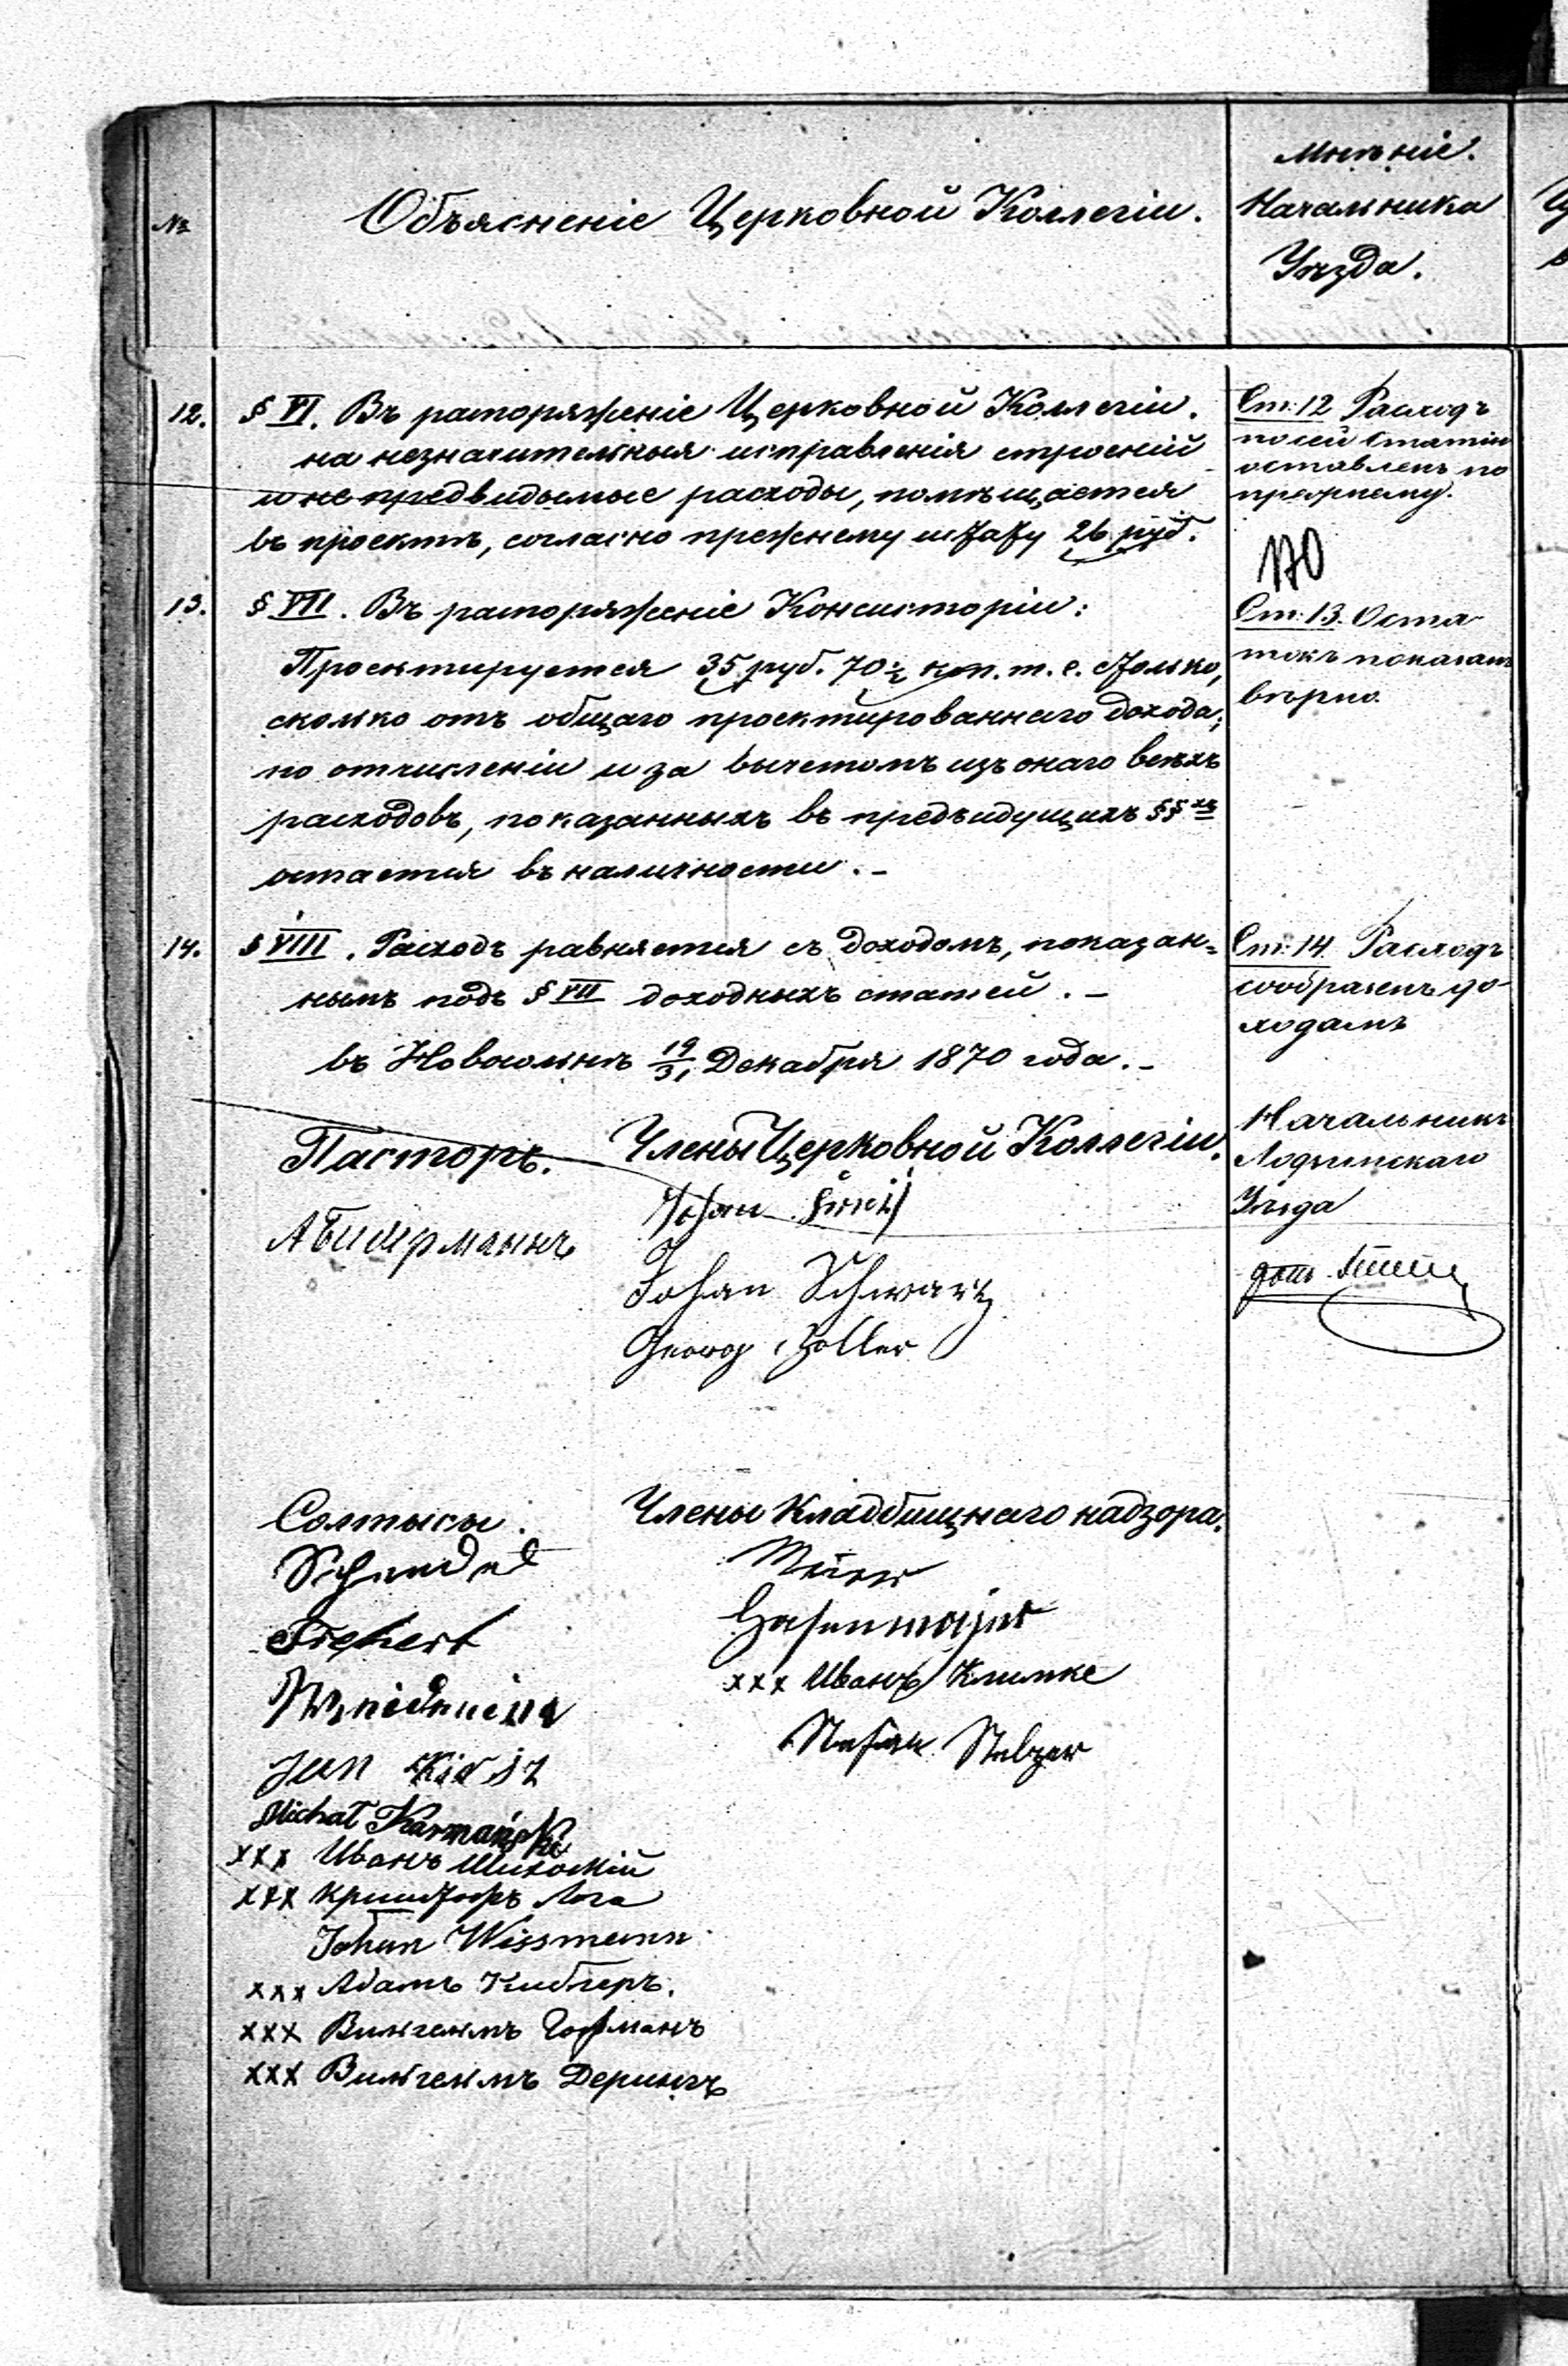 №
Объясненіе Церковной Коллегіи.
Мнѣніе.
Начальника
Уѣзда.
12. § VI. Въ распоряженіе Церковной Коллегіи.
на незначительныя исправленія строеній
и не предвидымые расходы, помѣщается
въ проектѣ, согласно прежнему штату 26 руб.
Ст: 12 Расходъ
по сей статіи
оставленъ по
прежнему.
170
13. § VII. Въ распоряженіе Консисторіи:
Проектируется 35 руб. 70½ коп. т. е. столько,
сколько отъ общаго проектированнаго дохода,
по отчисленіи и за вычетомъ изъ онаго всѣхъ
расходовъ, показанныхъ въ предъидущихъ §§хъ
остается въ наличности.-
Ст: 13. Оста-
токъ показанъ
вѣрно.
14. § VIII. Расходъ равняется съ доходомъ, показан=
нымъ подъ § VII доходныхъ статей.-
въ Новосольнѣ 19/31 Декабря 1870 года.-
Ст: 14. Расходъ
сообразенъ до-
ходамъ
Пасторъ.
Члены Церковной Коллегіи.
Johan
Johan Schwartz
Georg Zoller
Начальникъ
Лодзинскаго
Уѣзда
Солтысы.
Члены Кладбищнаго надзора.
Schendel
Hasenmajer
xxx Иванъ Климке
Stefan Stelzer
Jan
Michał Karmański
xxx Иванъ
xxx Криштофъ Лога
Johan Wissmann
xxx Адамъ Киблеръ.
xxx Вильгельмъ Гофманъ
xxx Вильгельмъ Дерингъ